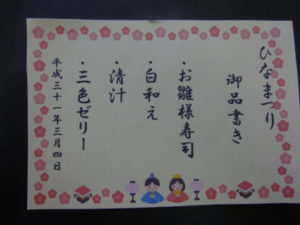 ひなまつり
御品書き
・お雛様寿司
・白和え
・清汁
・三色ゼリー
平成三十一年三月四日